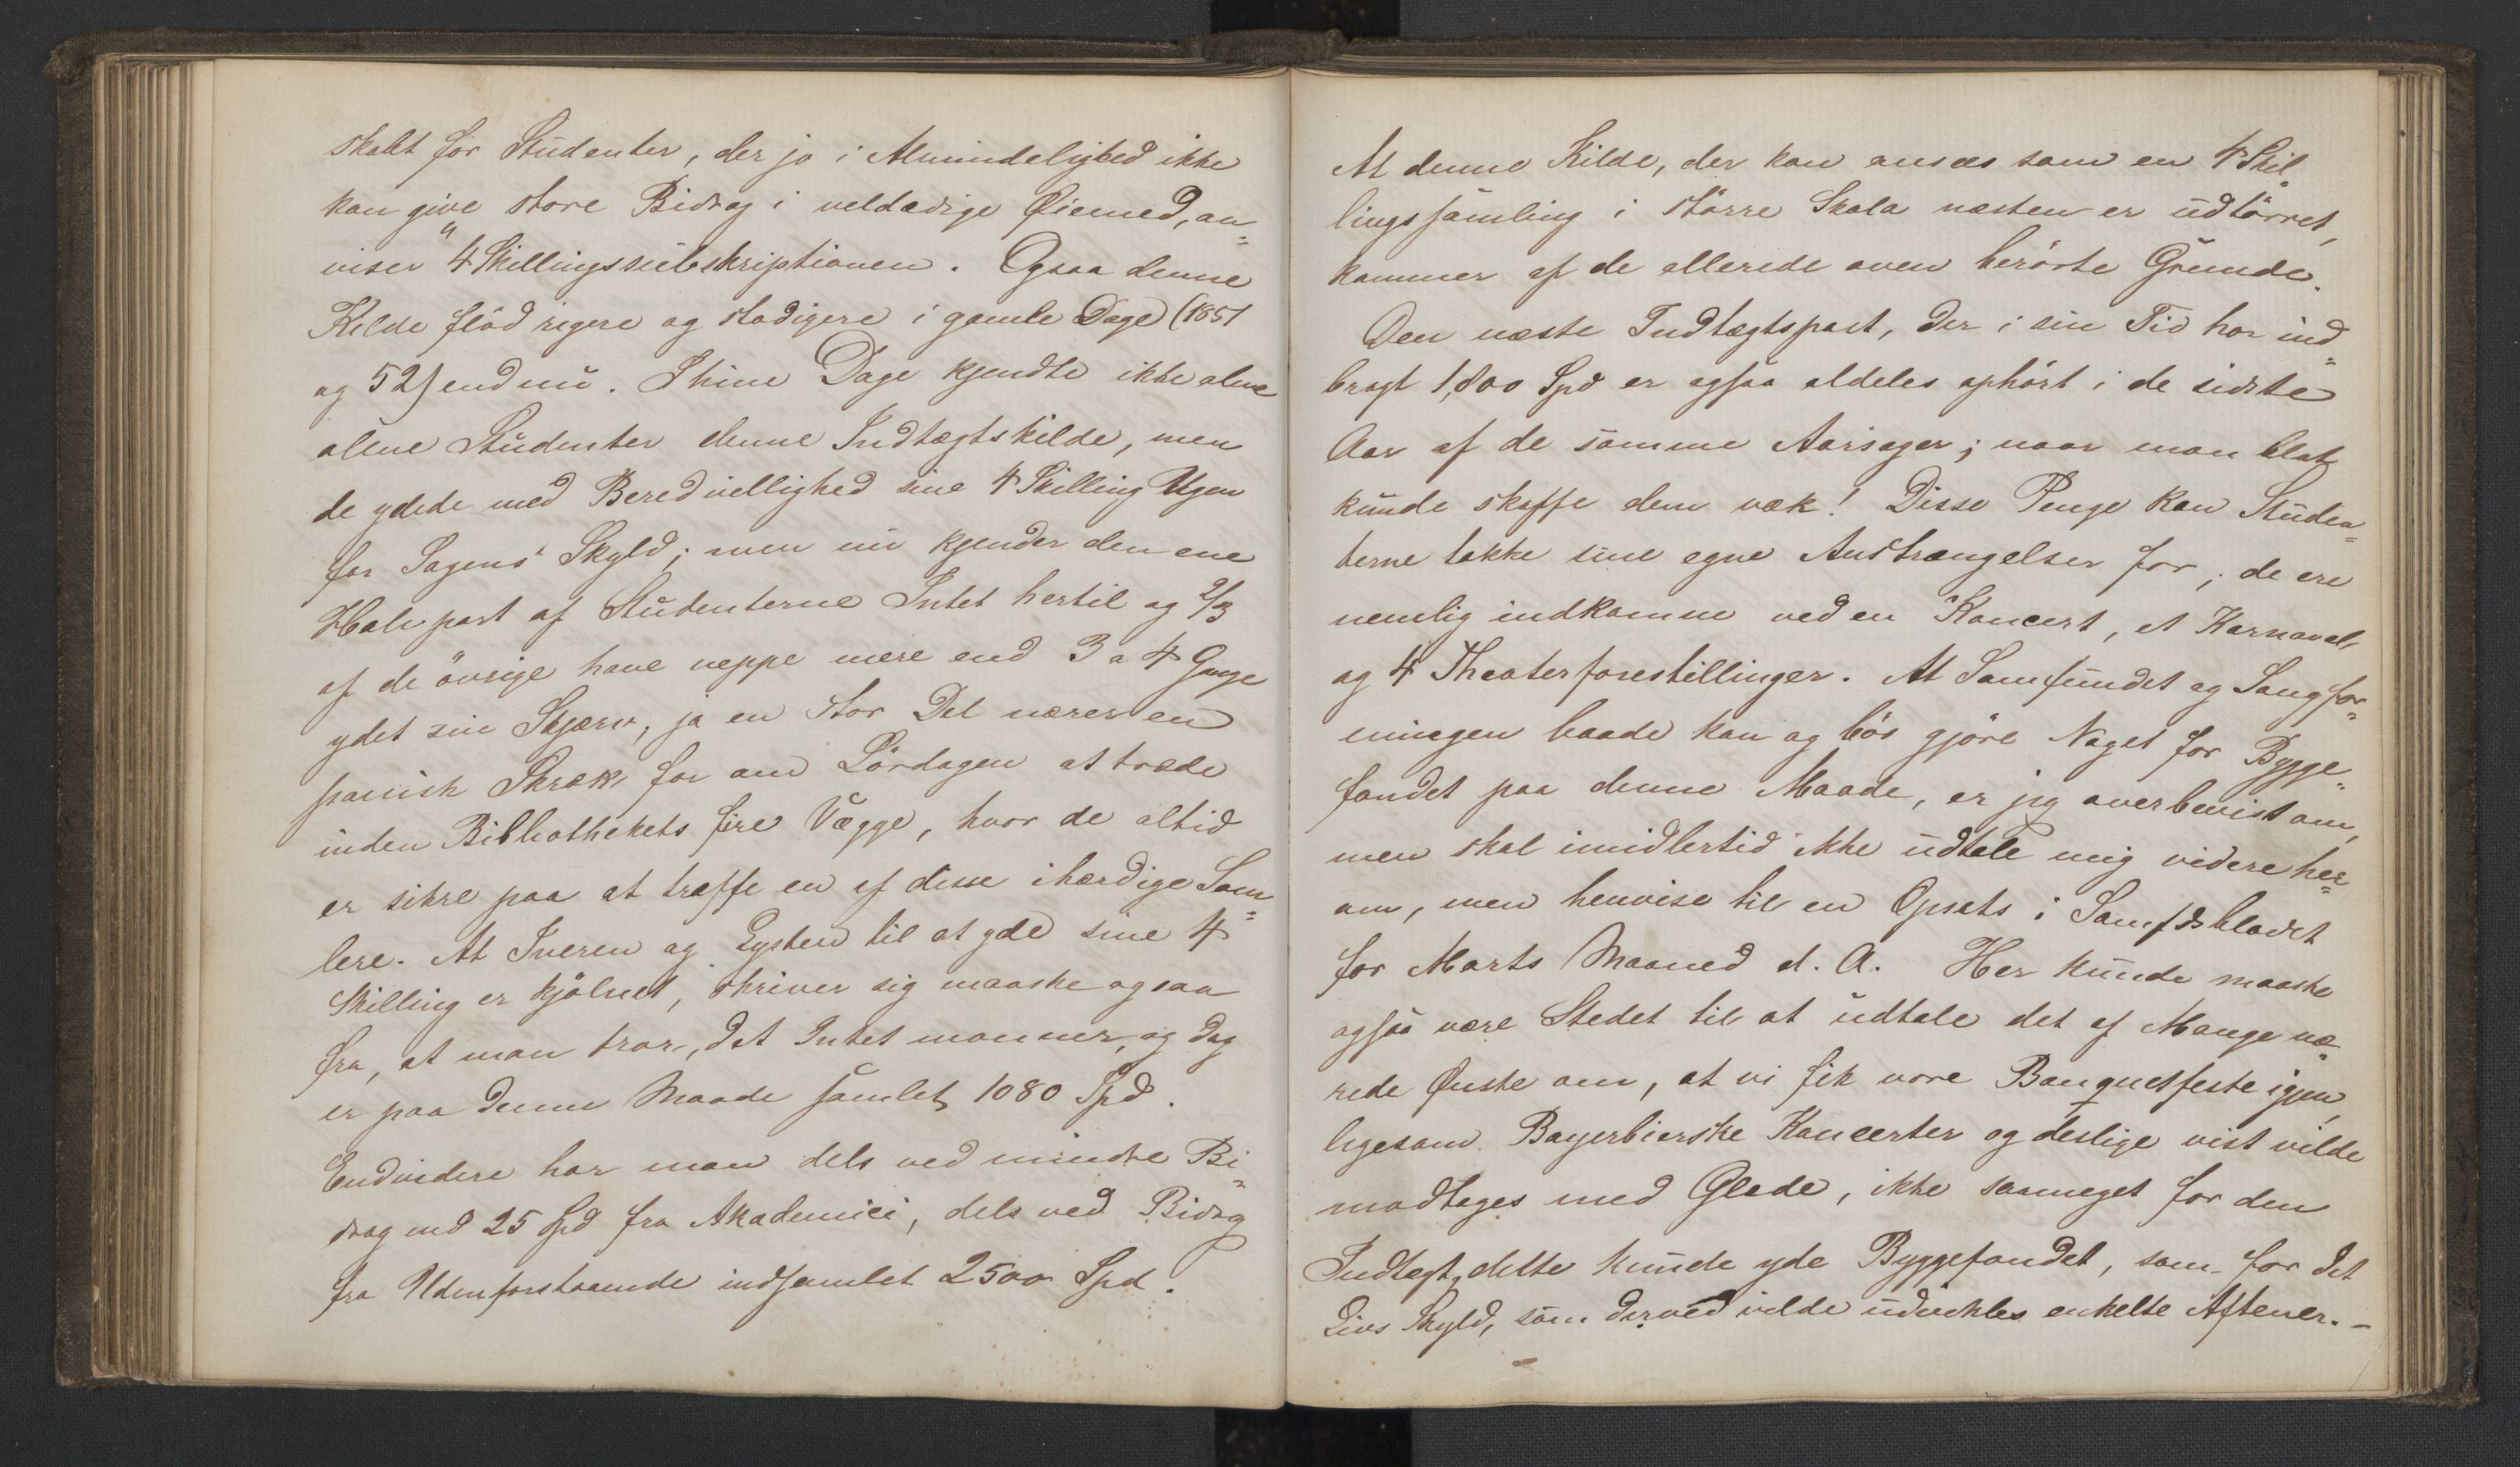 skabt for Studenter, der jo i Almindelighed ikke
kan give store Bidrag i veldædige Øiemed, an=
viser "4 Skillingssubskriptionen. Ogsaa denne
Kilde flöd rigere og stadigere i gamle Dage (1851
og 52) end nu. I hine Dage kjendte ikke alene
alene Studenter denne Indtægtskilde, men
de ydede med Beredvillighed sine 4 Skilling Ugen
for Sagens Skyld; men nu kjender den ene
Halvpart af Studenterne Intet hertil og 2/3
af de övrige have neppe mere end 3 a 4 Gange
ydet sin Skjærv, ja en stor Del nærer en
panisk Skræk for om Lördagen at træde
inden Bibliothekets fire Vægge, hvor de altid
er sikre paa at træffe en af disse ihærdige Sam=
lere. At Iveren og Lysten til at yde sine 4
Skilling er kjölnet, skriver sig maaske ogsaa
fra, at man tror, det Intet monner, og dog
er paa denne Maade samlet 1080 Spd.
Endvidere har man dels ved mindre Bi=
drag ved 25 Spd fra Akademici, dels ved Bidrag
fra Udenforstaaende indsamlet 2500 Spd.
At denne Kilde, der kan ansees som en 4 Skil=
lingssamling i större Skala næsten er udtörret,
kommer af de allerede oven berörte Grunde.
Den næste Indtægtspost, der i sin Tid har ind=
bragt 1,800 Spd er ogsaa aldeles ophört i de sidste
Aar af de samme Aarsager; naar man blot
kunde skaffe dem væk! Disse Penge kan Studen=
terne takke sine egne Anstrængelser for; de ere
nemlig indkomne ved en Koncert, et Karneval,
og 4 Theaterforestillinger. At Samfundet og Sangfor=
eningen baade kan og bör gjöre Noget for Bygge=
fondet paa denne Maade, er jeg overbevist om,
men skal imidlertid ikke udtale mig videre her=
om, men henvise til en Opsats i Samfdsbladet
for Marts Maaned d. A. Her kunde maaske
ogsaa være Stedet til at udtale det af Mange næ=
rede Ønske om, at vi fik vore Banquetfeste igjen,
ligesom Bayerbierske Koncerter og deslige vist vilde
modtages med Glede, ikke saameget for den
Indtægt, dette kunde yde Byggefondet, som for det
Livs Skyld, som derved vilde udvikles enkelte Aftener. –